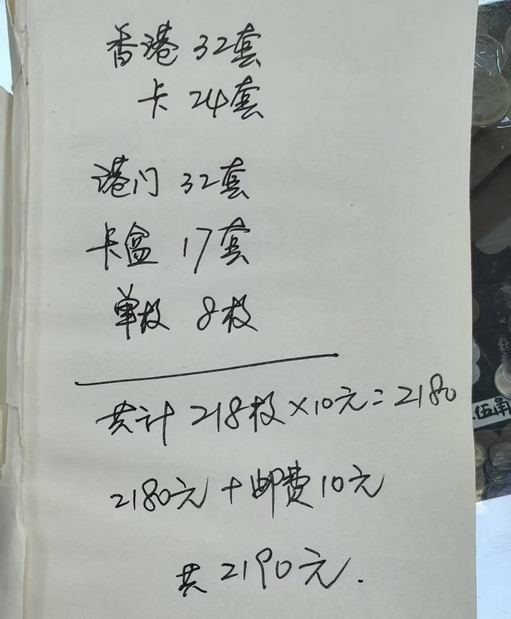 香港 32套
卡 24套
港门 32套
卡盒 17套
单枚 8枚
共计 218枚×10元=2180
2180元+邮费10元
共2190元.
伍角